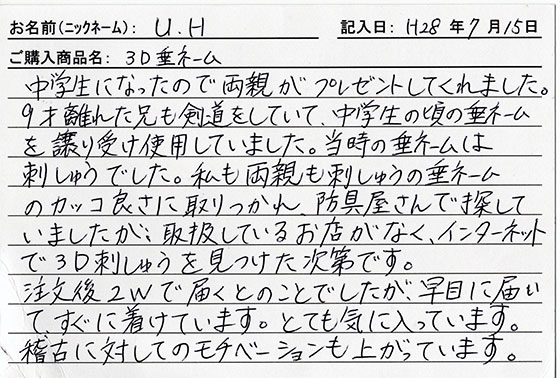 お名前(ニックネーム): U.H 記入日: H28 年 7 月 15 日
ご購入商品名: 3D垂ネーム
中学生になったので両親がプレゼントしてくれました。
9才離れた兄も剣道をしていて、中学生の頃の垂ネーム
を譲り受け使用していました。当時の垂ネームは
刺しゅうでした。私も両親も刺しゅうの垂ネーム
のカッコ良さに取りつかれ、防具屋さんで探して
いましたが、取扱しているお店がなく、インターネット
で3D刺しゅうを見つけた次第です。
注文後2Wで届くとのことでしたが、早目に届い
て、すぐに着けています。とても気に入っています。
稽古に対してのモチベーションも上がっています。